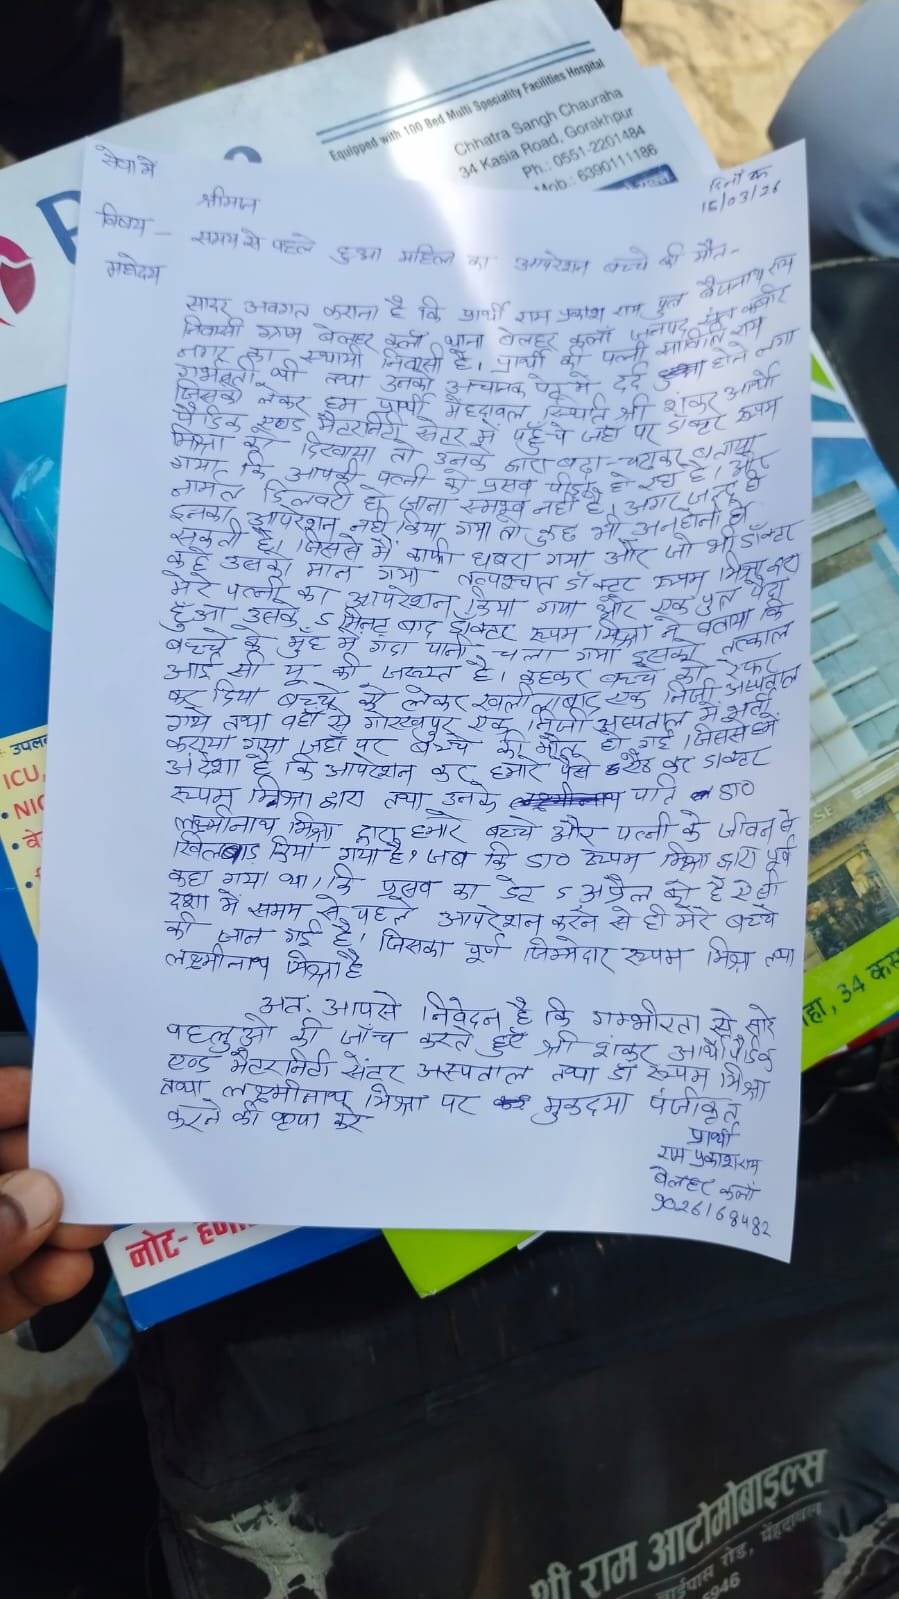 Equipped with 100 Bed Multi Speciality Facilities Hospital
Chhatra Sangh Chauraha
34 Kasia Road, Gorakhpur
Ph.: 0551-2201484
Mob.: 6390111186
सेवा में
श्रीमान
दिनांक
15/03/26
विषय - समय से पहले हुआ महिला का आपरेशन बच्चे की मौत -
महोदय
सादर अवगत कराना है कि प्रार्थी राम प्रकाश राम पुत्र बैजनाथ राम
निवासी ग्राम बेलहर कलां थाना बेलहर कलां जनपद संत कबीर
नगर का स्थायी निवासी है। प्रार्थी की पत्नी राम
गर्भवती थी तथा उनको अचानक पेट में दर्द होने लगा
जिसको लेकर हम प्रार्थी मेंहदावल स्थित श्री शंकर आर्थो
पैडिक एण्ड मैटरनिटी सेंटर में पहुँचे जहां पर डाक्टर रूपम
मिश्रा को दिखाया तो उनके द्वारा बढ़ा-चढ़ाकर बताया
गया कि आपकी पत्नी को प्रसव पीड़ा हो रहा है। और
नार्मल डिलवरी हो जाना सम्भव नहीं है, अगर जल्द ही
इनका आपरेशन नहीं किया गया तो कुछ भी अनहोनी हो
सकती है। जिससे मैं काफी घबरा गया और जो भी डॉक्टर
कहे उसको मान गया तत्पश्चात डॉक्टर रूपम मिश्रा द्वारा
मेरे पत्नी का आपरेशन किया गया और एक पुत्र पैदा
हुआ उसके 5 मिनट बाद डॉक्टर रूपम मिश्रा ने बताया कि
बच्चे के मुँह में गंदा पानी चला गया इसको तत्काल
आई सी यू की जरूरत है। कहकर बच्चे को रेफर
कर दिया बच्चे को लेकर खलीलाबाद एक निजी अस्पताल
गये तथा वहाँ से गोरखपुर एक निजी अस्पताल में भर्ती
कराया गया जहाँ पर बच्चे की मौत हो गई। जिससे हमें
अंदेशा है कि आपरेशन कर हमारे पैसे कर डाक्टर
रूपम मिश्रा द्वारा तथा उनके पति डा०
लक्ष्मीनाथ मिश्रा द्वारा हमारे बच्चे और पत्नी के जीवन से
खिलवाड़ किया गया है। जब कि डा० रूपम मिश्रा द्वारा पूर्व
कहा गया था, कि प्रसव का डेट 5 अप्रैल को है ऐसी
दशा में समय से पहले आपरेशन करने से ही मेरे बच्चे
की जान गई है। जिसका पूर्ण जिम्मेदार रूपम मिश्रा तथा
लक्ष्मीनाथ मिश्रा है
अतः आपसे निवेदन है कि गम्भीरता से सारे
पहलुओ की जाँच करते हुए श्री शंकर आर्थोपैडिक
एण्ड मैटरनिटी सेंटर अस्पताल तथा डॉ रूपम मिश्रा
तथा लक्ष्मीनाथ मिश्रा पर मुकदमा पंजीकृत
करने की कृपा करे
प्रार्थी
राम प्रकाश राम
बेलहर कलां
9026168482
ICU,
34
नोट-
श्री राम आटोमोबाइल्स
बाईपास रोड, मेंहदावल
5946